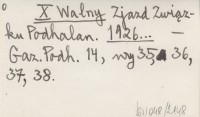 X Walny Zjazd Związ-
ku Podhalan. 1926... —
Gaz. Podh. 14, nry 35, 36,
37, 38.